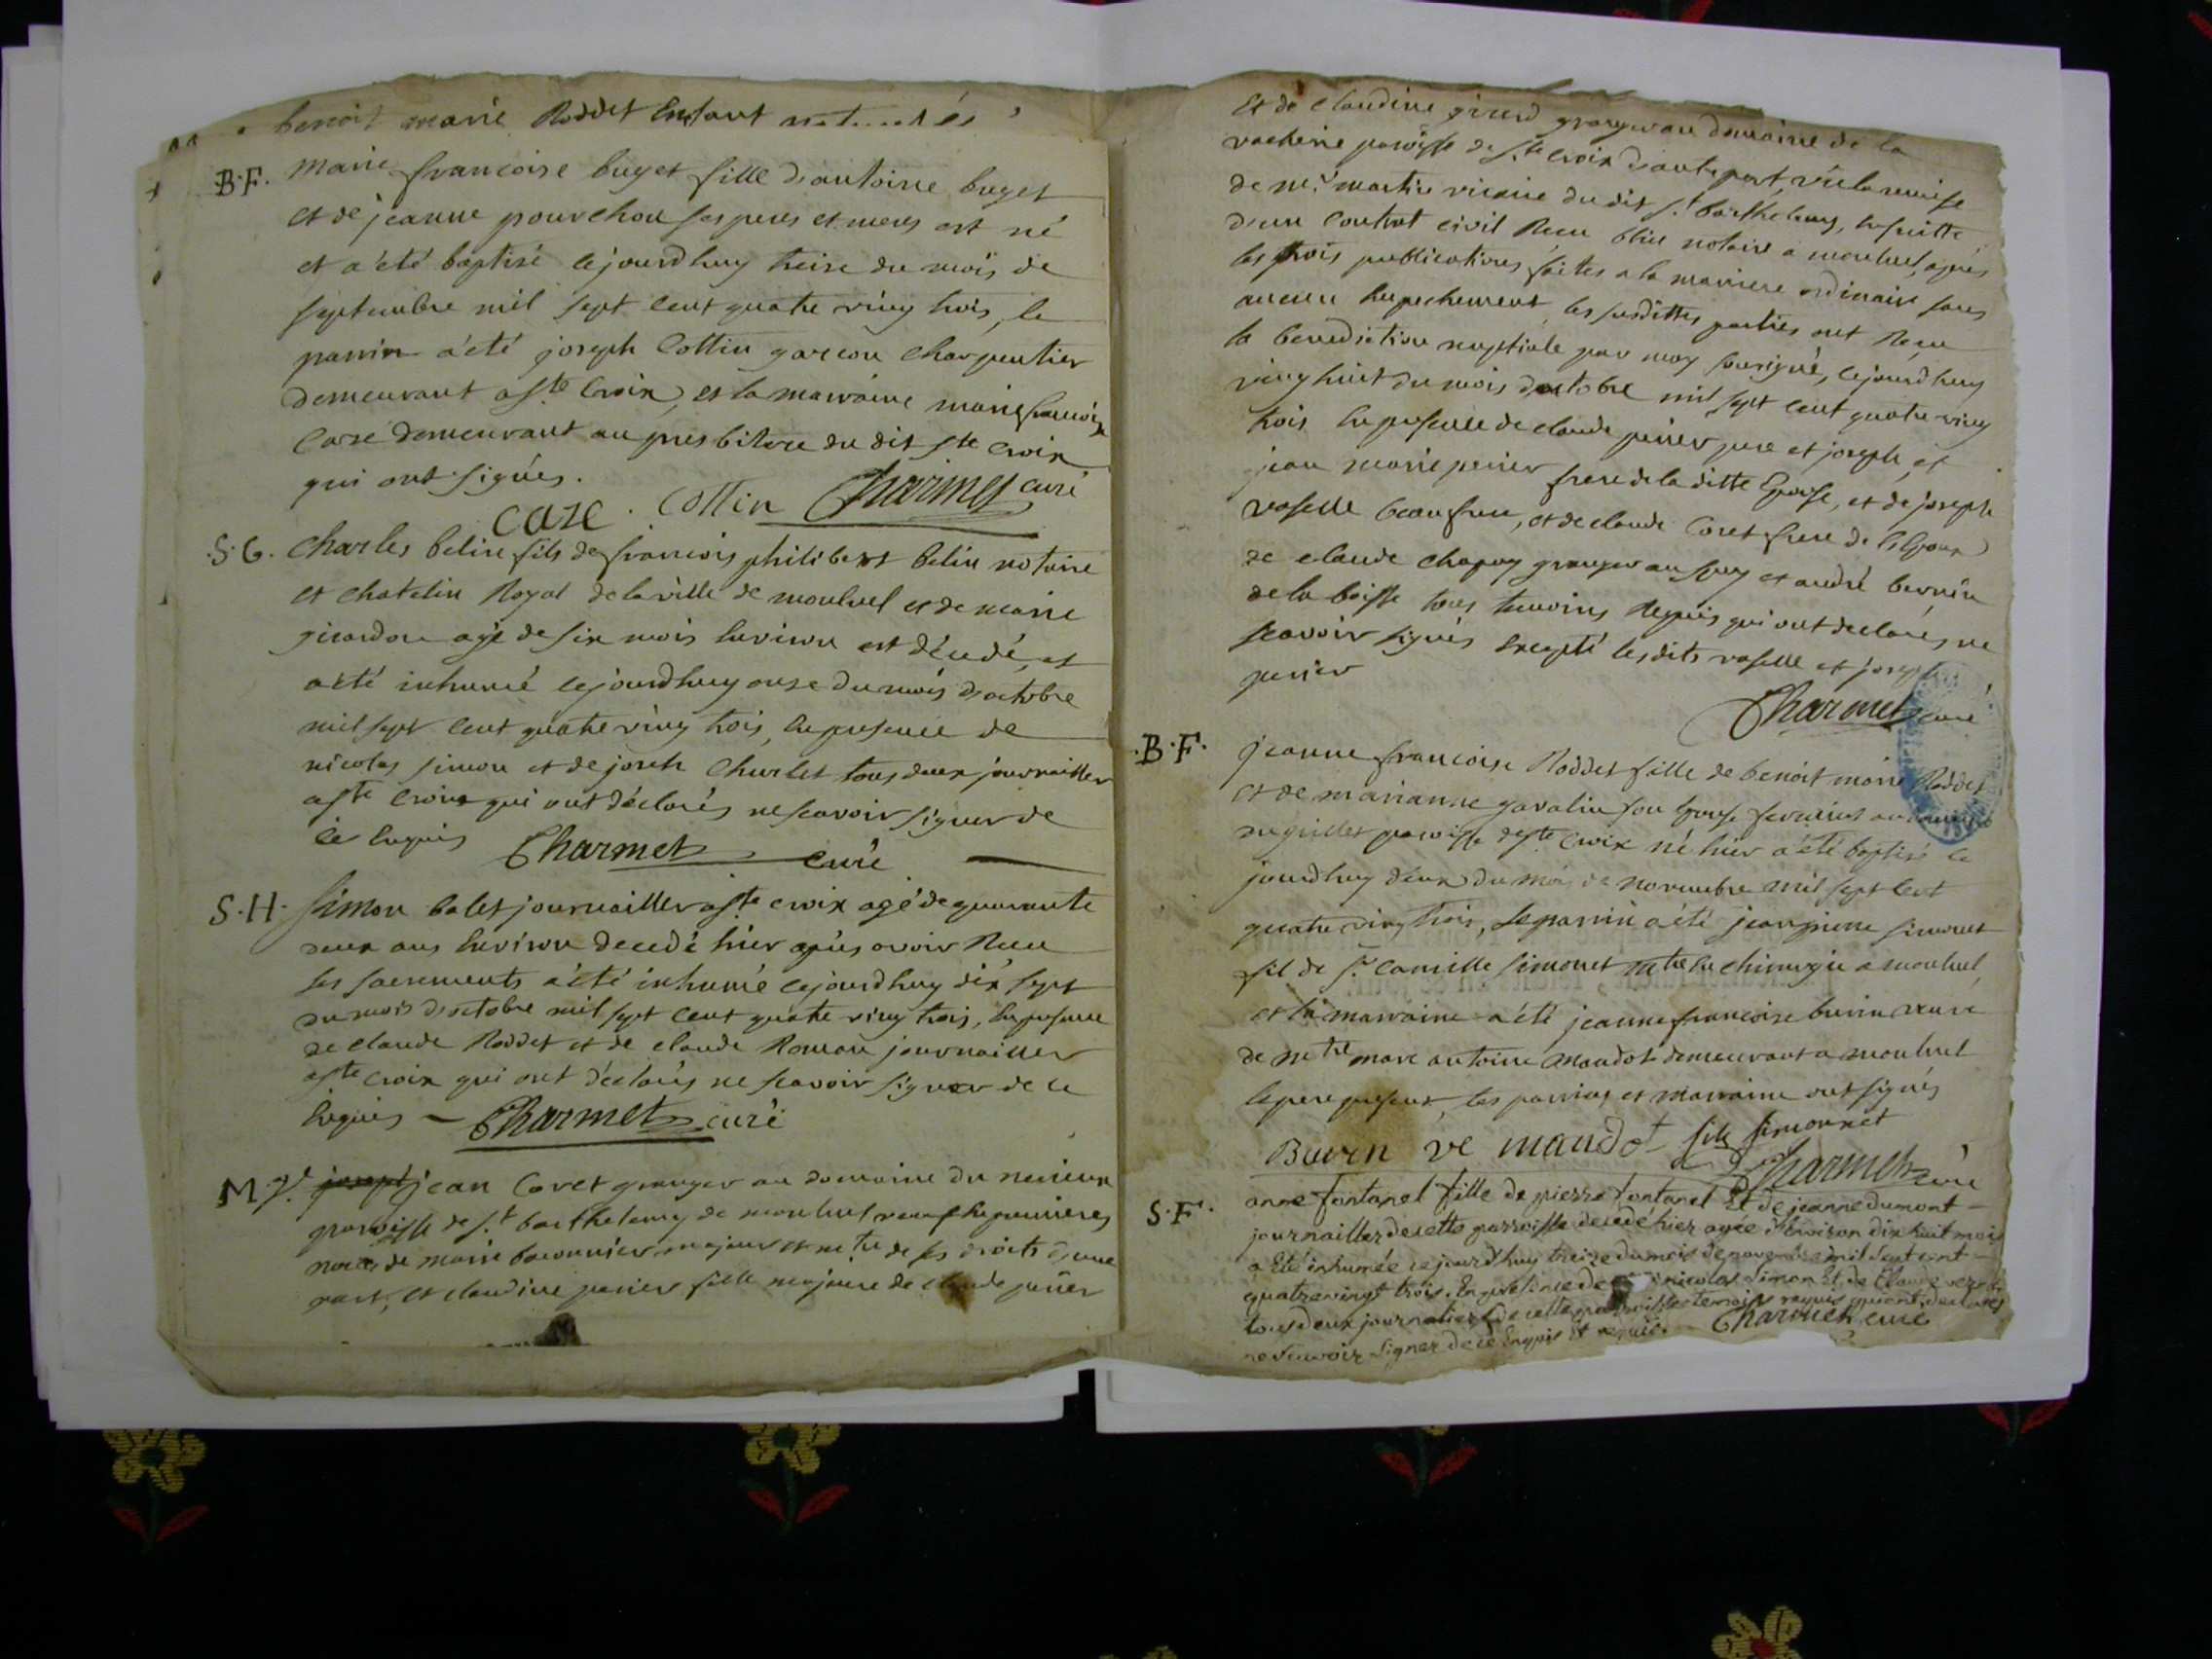 benoit marie Roddet Enfant
B.F. marie francoise buget fille d'antoine buget
et de jeanne pourchou ses peres et meres est né
et a été baptisé cejourdhuy treise du mois de
septembre mil sept cent quatre ving trois, le
parrin a été joseph Cottin garcon charpentier
demeurant a ste Croix, et la marraine marie francoise
Caze demeurant au presbitere du dit ste Croix
qui ont signés.
caze . cottin Charmet curé
S.G. Charles belin fils de francois philibert belin notaire
et chatelin Royal de la ville de montluel et de marie
girardon agé de six mois Environ est décedé, et
a été inhumé cejourdhuy onze du mois d'octobre
mil sept cent quatre ving trois, En presence de
nicolas simon et de joseh Churlet tous deux journaillier
a ste Croix qui ont déclarés ne scavoir signer de
ce Enquis Charmet curé
S.H. Simon balet journaillier a ste croix agé de quarante
deux ans Environ decedé hier après avoir Recu
ses sacrements a été inhumé cejourdhuy dix sept
du mois d'octobre mil sept cent quatre ving trois, En presence
de claude Roddet et de claude Roman journaillier
a ste croix qui ont déclarés ne scavoir signer de ce
Enquis – Charmet curé
M gl. joseph jean Coret granger au domaine du
paroisse de s.t barthelemy de montluel veuf En premieres
noces de marie baronnier majeur et mtre de ses droits d'une
part, et claudine perier fille majeure de claude perier
et de claudine girerd granger au domaine de la
vacherie paroisse de s.te croix d'autre part, vue la remise
de mr. martin vicaire du dit s.t barthelemy, Ensuitte
d'un Contrat civil Recu notaire a montluel, après
les trois publications faites a la maniere ordinaire sans
aucun Empechement, les susdittes parties ont Recu
la benediction nuptiale par moy sousigné, cejourdhuy
ving huit du mois d'octobre mil sept cent quatre ving
trois En presence de claude perier pere et joseph, et
jean marie perier frere de la ditte Epouse, et de joseph
vaselle beaufrere, et de claude Coret frere de l'Epoux
de claude Chapuy granger au et andré bernin
de la boisse tous temoins Requis qui ont declarés ne
scavoir signés Excepté lesdits vaselle et joseph
perier
Charmet curé
B.F. jeanne francoise Roddet fille de benoit marie Roddet
et de marianne gavalin son Epouse au
paroisse de ste croix né hier a été baptisé ce
jourdhuy deux du mois de novembre mil sept cent
quatre ving trois, Le parrin a été jean pierre simonet
fil de sr. Camille simonet mtre En chirurgie a montluel,
et la marraine a été jeanne francoise burin veuve
de mtre marc antoine mandot demeurant a montluel
le pere present, les parrins et marraine ont signés
Burin ve mandot fils simonnet
Charmet curé
S.F. anne fontanel fille de pierre fontanel Et de jeanne dumont –
journaillier de cette parroisse decedé hier agée d'Environ dix huit mois
a Eté inhumée cejourd'huy treize du mois de novembre mil sept cent –
quatrevingt trois. En presence de nicolas simon Et de Claude
tous deux journaliers de cette parroisse temoins requis qui ont declarés
ne scavoir signer de ce Enquis Et requis. Charmet curé